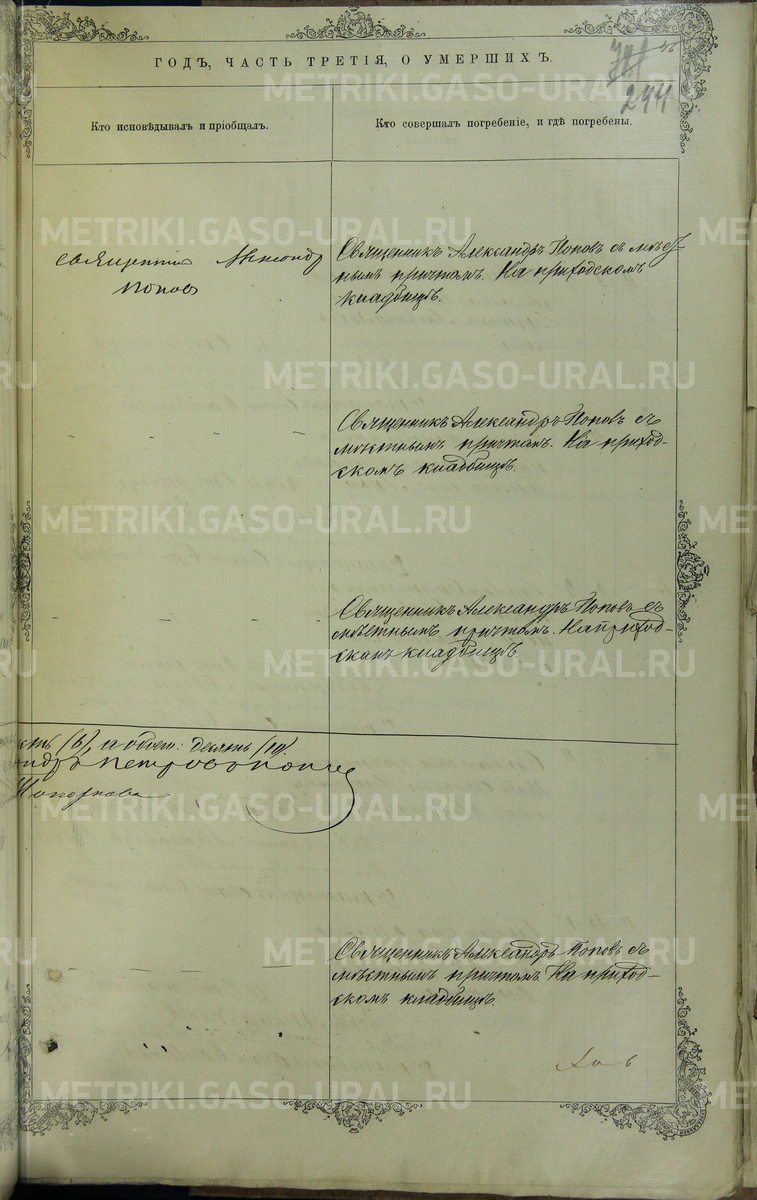 ГОДЪ, ЧАСТЬ ТРЕТІЯ, О УМЕРШИХЪ.
244
Кто исповѣдывалъ и пріобщалъ.
Кто совершалъ погребеніе, и гдѣ погребены.
Священникъ Александръ
Поповъ
Священникъ Александръ Поповъ съ мѣст
нымъ причтомъ. На приходскомъ
кладбищѣ.
Священникъ Александръ Поповъ съ
мѣстнымъ причтомъ. На приход-
скомъ кладбищѣ.
Священникъ Александръ Поповъ съ
мѣстнымъ причтомъ. На приход-
скомъ кладбищѣ.
(6), а обоег: десять (10).
Петровъ Поповъ
Священникъ Александръ Поповъ съ
мѣстнымъ причтомъ. На приход-
скомъ кладбищѣ.
METRIKI.GASO-URAL.RU